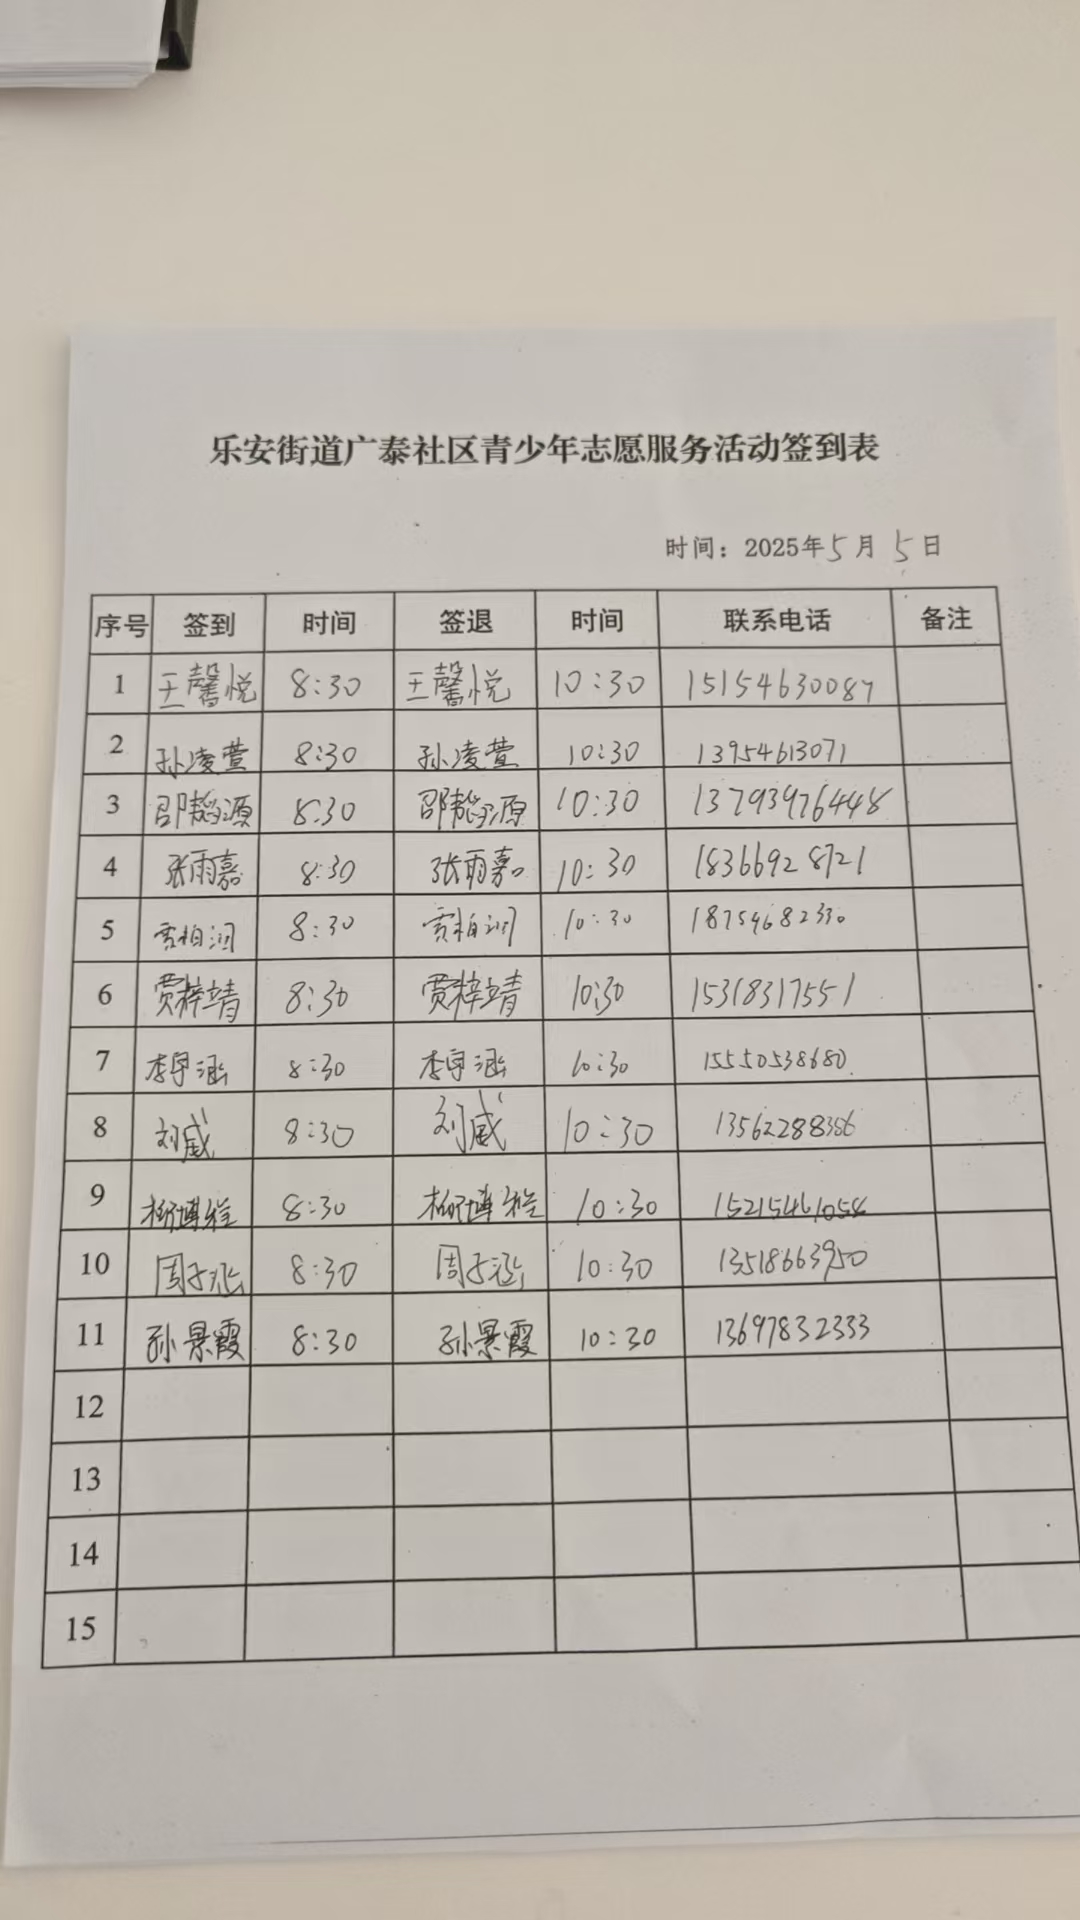 乐安街道广泰社区青少年志愿服务活动签到表
时间：2025年5月5日
序号 签到 时间 签退 时间 联系电话 备注
1 王馨悦 8:30 王馨悦 10:30 15154630087
2 孙凌萱 8:30 孙凌萱 10:30 13954613071
3 邵韬源 8:30 邵韬源 10:30 13793976448
4 张雨嘉 8:30 张雨嘉 10:30 18366928721
5 贾柏润 8:30 贾柏润 10:30 18754682330
6 贾梓靖 8:30 贾梓靖 10:30 15318317551
7 李宇涵 8:30 李宇涵 10:30 15550538680
8 刘威 8:30 刘威 10:30 13562288386
9 8:30 10:30 15215461058
10 周子涵 8:30 周子涵 10:30 13518663950
11 孙景霞 8:30 孙景霞 10:30 13697832333
12
13
14
15